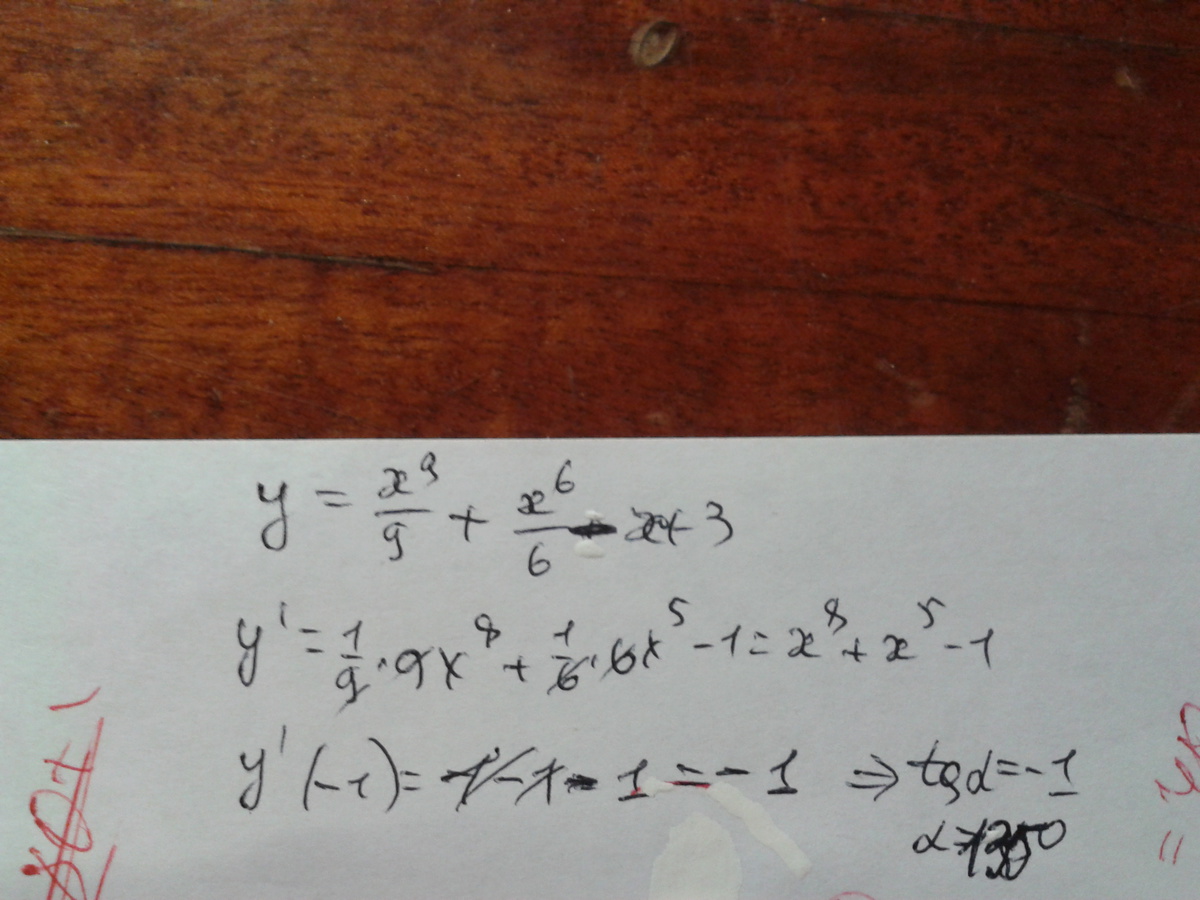 y = x⁹/9 + x⁶/6 - x + 3
y' = 1/9 · 9x⁸ + 1/6 · 6x⁵ - 1 = x⁸ + x⁵ - 1
y'(-1) = 1 - 1 - 1 = -1 ⇒ tgα = -1
α = 135⁰